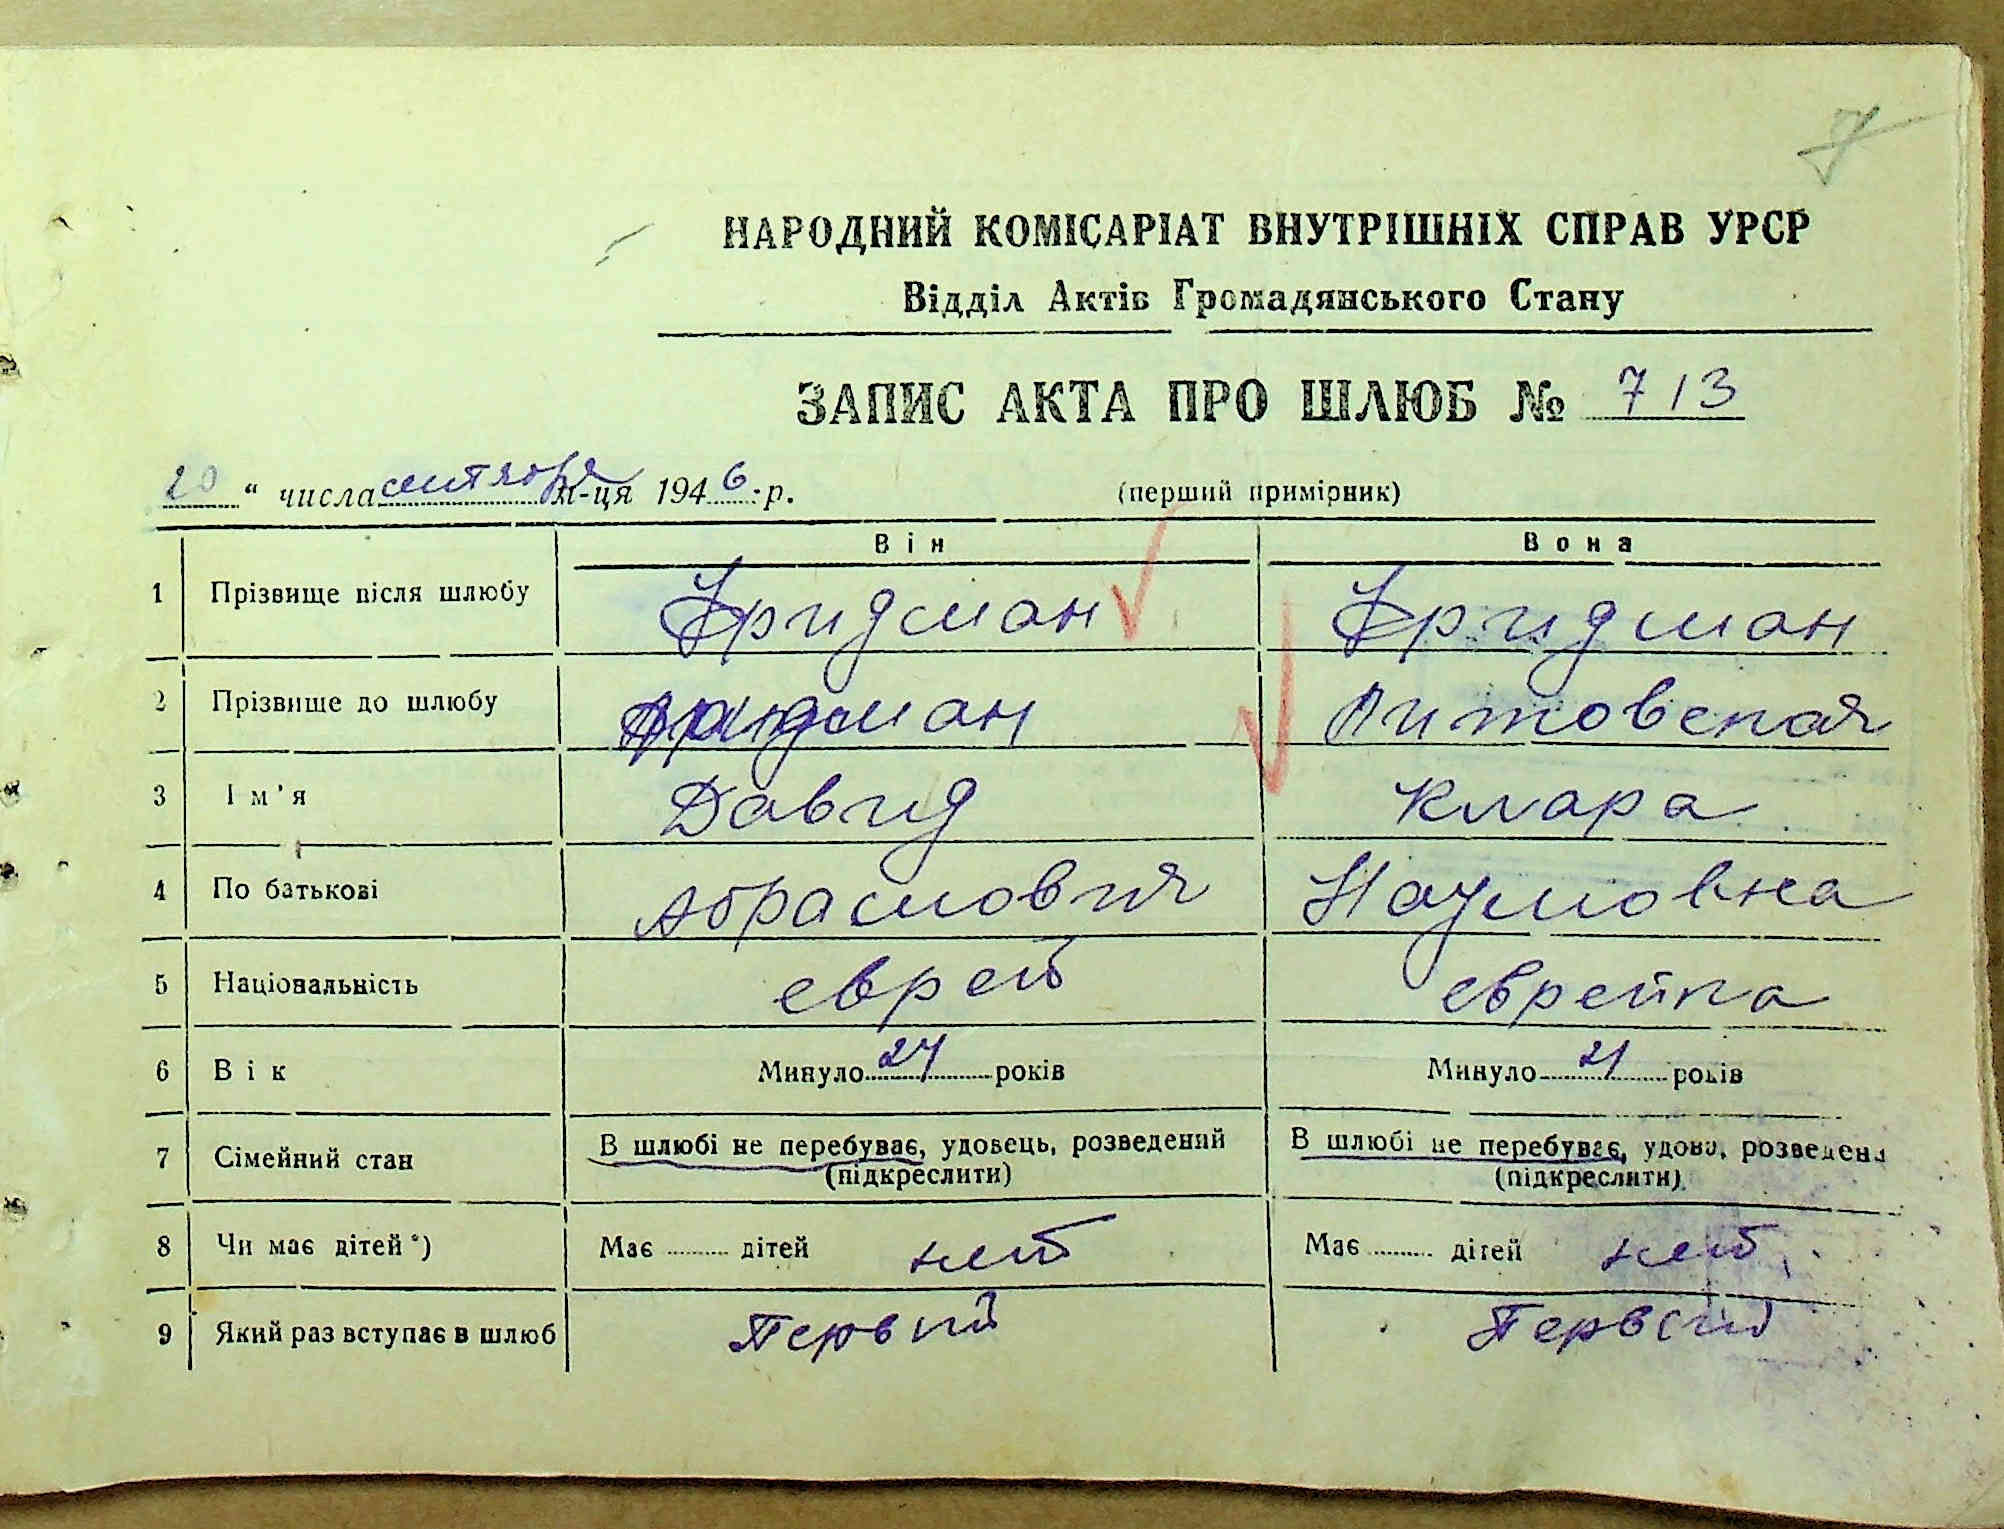 7
НАРОДНИЙ КОМІСАРІАТ ВНУТРІШНІХ СПРАВ УРСР
Відділ Актів Громадянського Стану
ЗАПИС АКТА ПРО ШЛЮБ № 713
20 " числа сентября м-ця 1946 р. (перший примірник)
Він Вона
1 Прізвище після шлюбу Фридман Фридман
2 Прізвище до шлюбу Фридман Литовская
3 Ім'я Давид Клара
4 По батькові Абрамович Наумовна
5 Національність еврей еврейка
6 Вік Минуло 24 років Минуло 21 років
7 Сімейний стан В шлюбі не перебуває, удовець, розведений В шлюбі не перебуває, удова, розведена
(підкреслити) (підкреслити)
8 Чи має дітей*) Має дітей нет Має дітей нет
9 Який раз вступає в шлюб Первый Первый